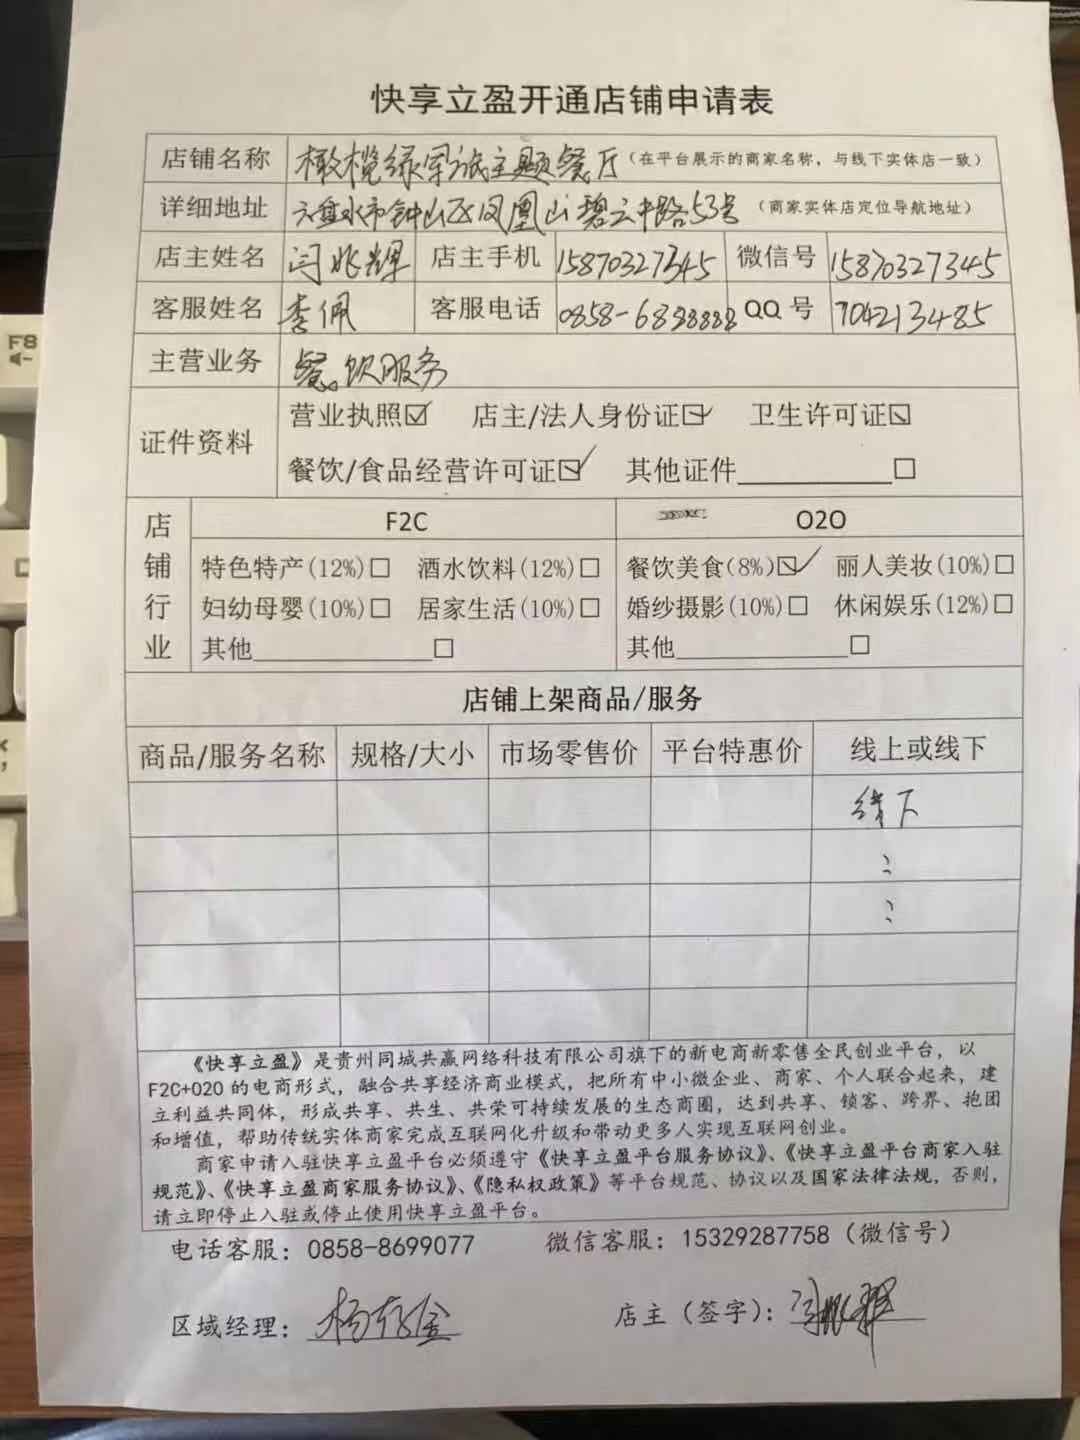 快享立盈开通店铺申请表
店铺名称 橄榄绿军旅主题餐厅（在平台展示的商家名称，与线下实体店一致）
详细地址 六盘水市钟山区凤凰山碧云中路53号（商家实体店定位导航地址）
店主姓名 闫兆辉 店主手机 15870327345 微信号 15870327345
客服姓名 李佩 客服电话 0858-6888888 QQ号 704213485
主营业务 餐饮服务
证件资料 营业执照☑ 店主/法人身份证☑ 卫生许可证☑
餐饮/食品经营许可证☑ 其他证件____________□
店铺行业 F2C O2O
特色特产(12%)□ 酒水饮料(12%)□ 餐饮美食(8%)☑ 丽人美妆(10%)□
妇幼母婴(10%)□ 居家生活(10%)□ 婚纱摄影(10%)□ 休闲娱乐(12%)□
其他______________□ 其他______________□
店铺上架商品/服务
商品/服务名称 规格/大小 市场零售价 平台特惠价 线上或线下
线下
《快享立盈》是贵州同城共赢网络科技有限公司旗下的新电商新零售全民创业平台，以
F2C+O2O 的电商形式，融合共享经济商业模式，把所有中小微企业、商家、个人联合起来，建
立利益共同体，形成共享、共生、共荣可持续发展的生态商圈，达到共享、锁客、跨界、抱团
和增值，帮助传统实体商家完成互联网化升级和带动更多人实现互联网创业。
商家申请入驻快享立盈平台必须遵守《快享立盈平台服务协议》、《快享立盈平台商家入驻
规范》、《快享立盈商家服务协议》、《隐私权政策》等平台规范、协议以及国家法律法规，否则，
请立即停止入驻或停止使用快享立盈平台。
电话客服：0858-8699077 微信客服：15329287758（微信号）
区域经理：杨存金 店主（签字）：闫兆辉
F8